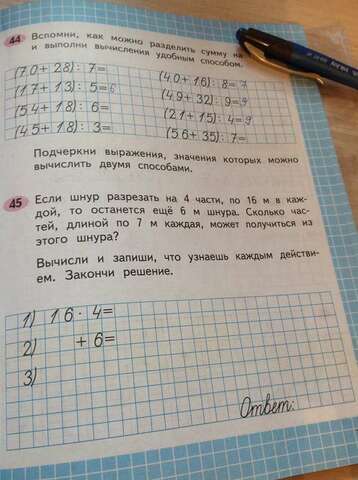 44 Вспомни, как можно разделить сумму на
и выполни вычисления удобным способом.
(70+28):7=
(40+16):8=7
(17+13):5=6
(49+32):9=9
(54+18):6=
(21+15):4=9
(45+18):3=
(56+35):7=
Подчеркни выражения, значения которых можно
вычислить двумя способами.
45 Если шнур разрезать на 4 части, по 16 м в каж-
дой, то останется ещё 6 м шнура. Сколько час-
тей, длиной по 7 м каждая, может получиться из
этого шнура?
Вычисли и запиши, что узнаешь каждым действи-
ем. Закончи решение.
1) 16·4=
2) +6=
3)
Ответ: